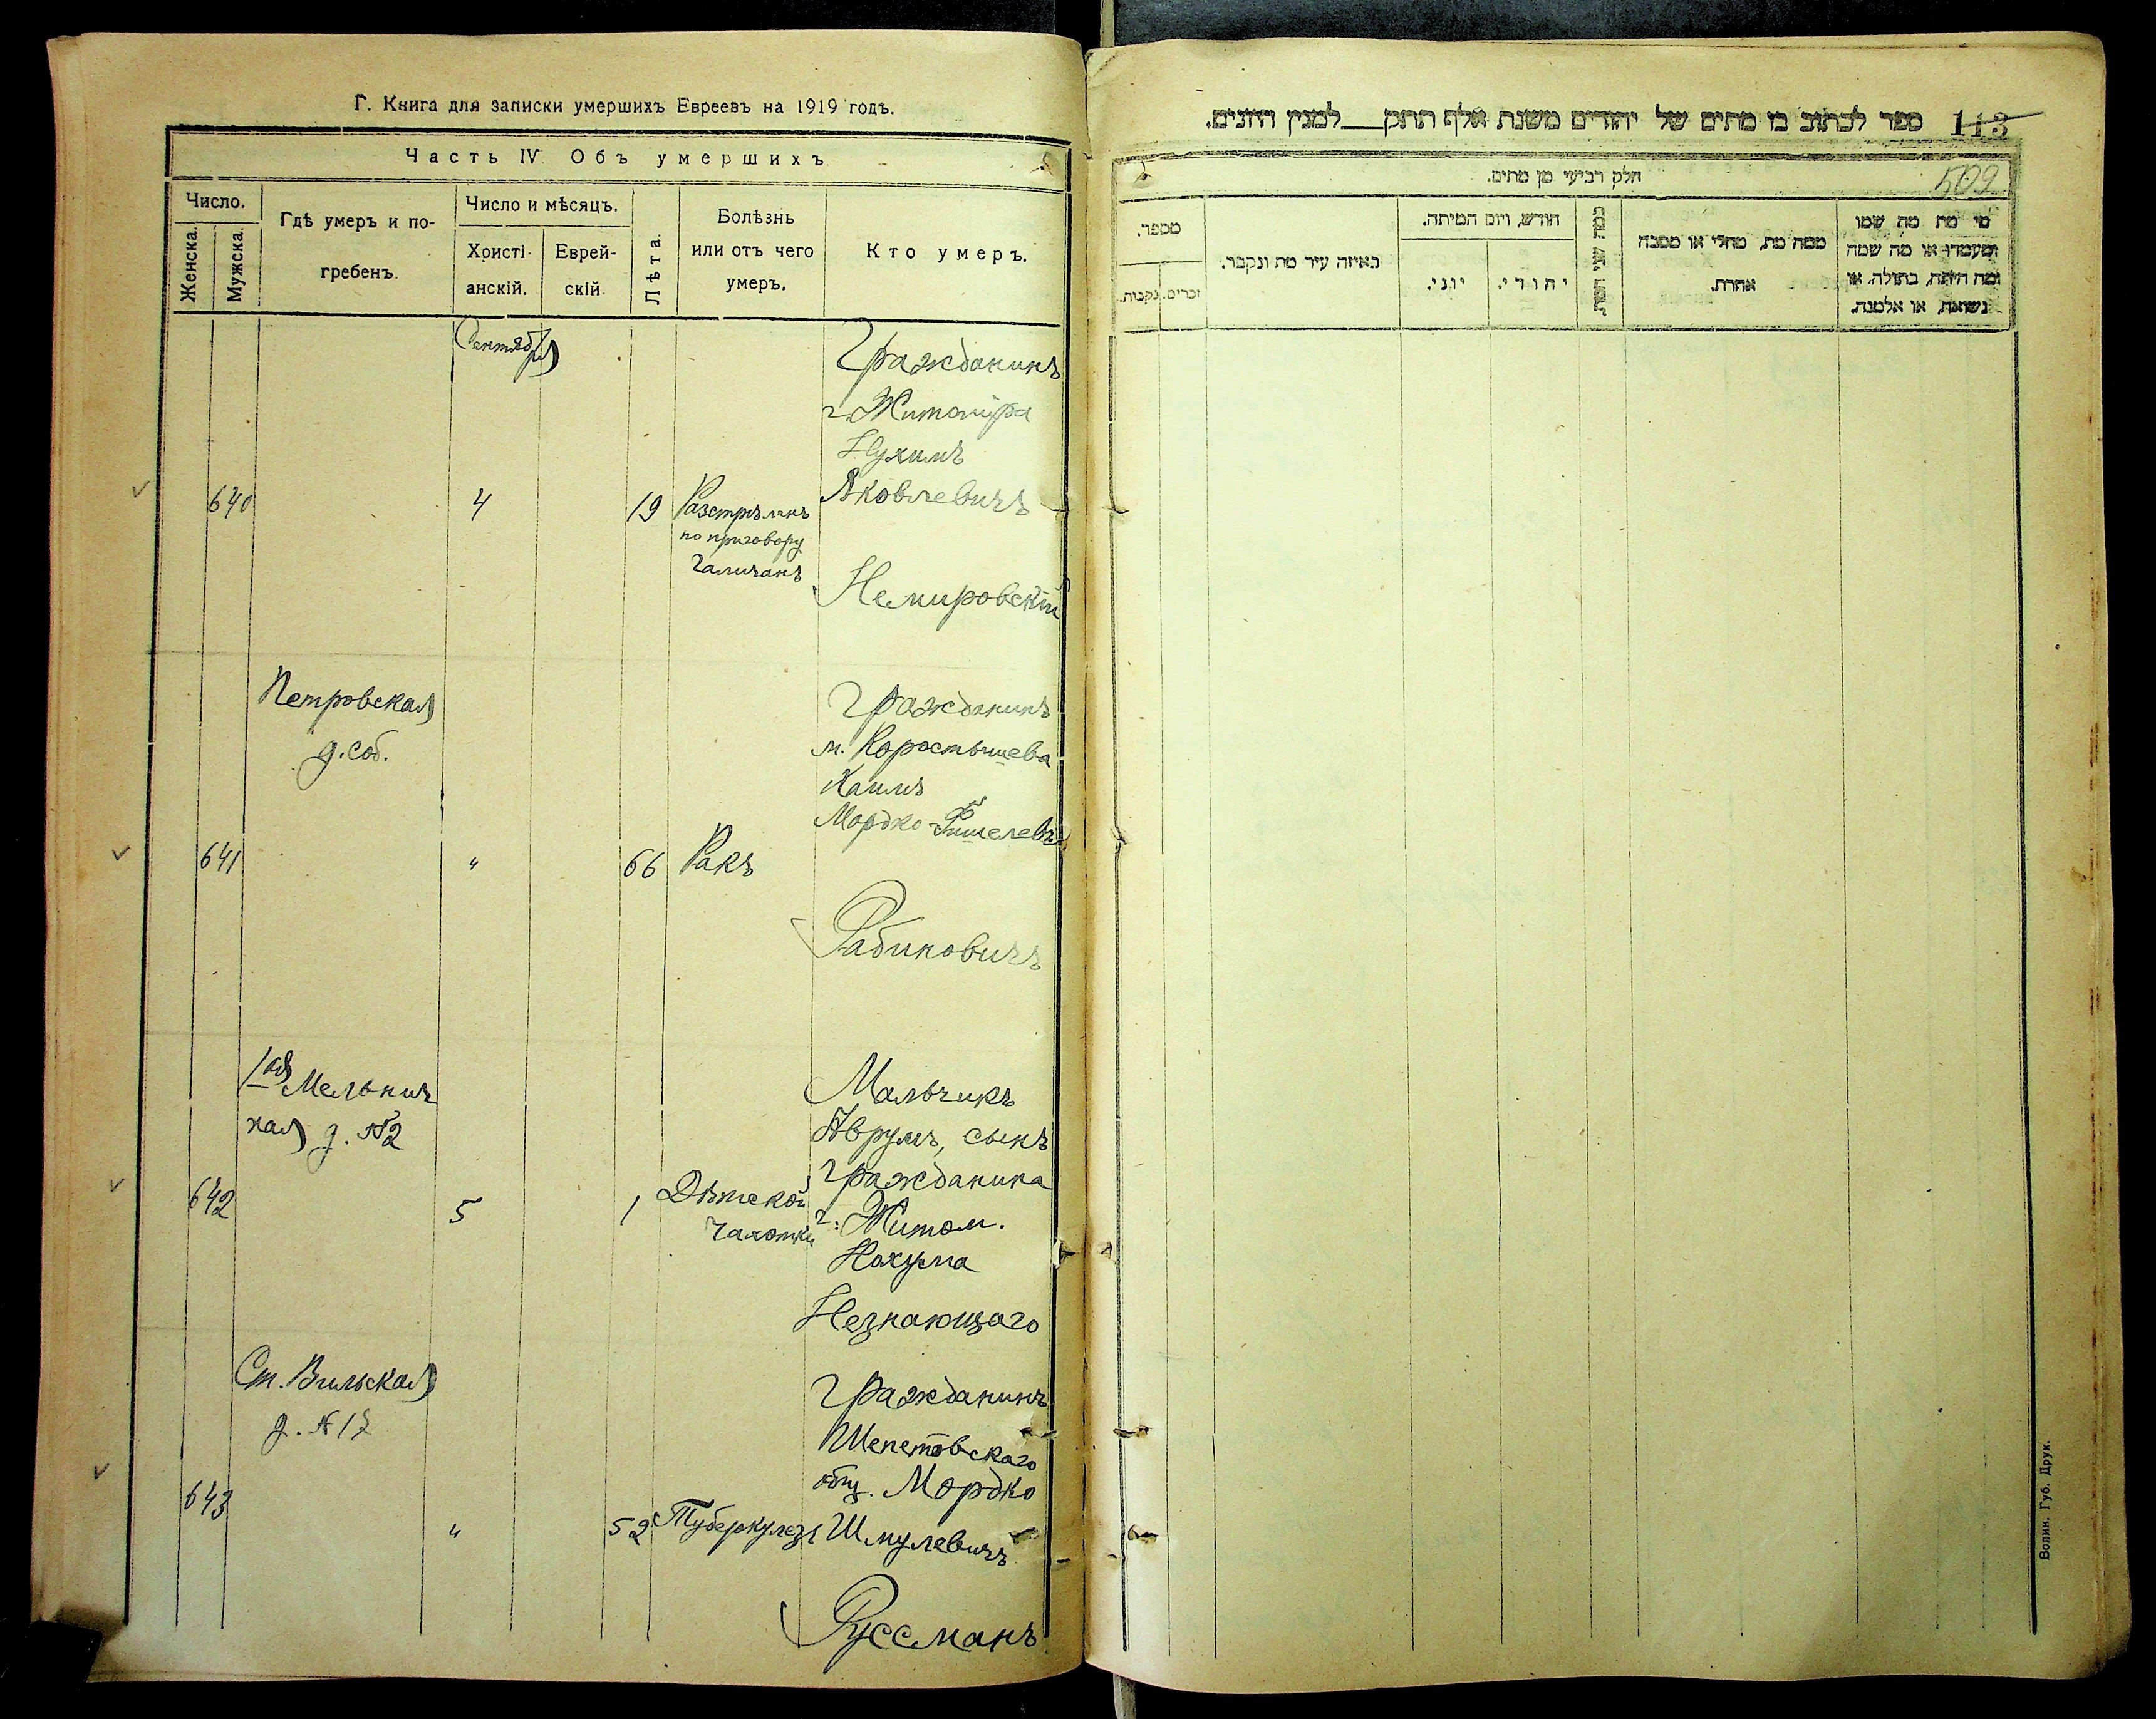 Г. Книга для записки умершихъ Евреевъ на 1919 годъ.
Часть IV Объ умершихъ
Число.
Женска.
Мужска.
Гдѣ умеръ и по-
гребенъ.
Число и мѣсяцъ.
Христі-
анскій.
Еврей-
скій
Лѣта.
Болѣзнь
или отъ чего
умеръ.
Кто умеръ.
Сентября
640
4
19
Разстрѣлянъ
по приговору
Галичанъ
Гражданинъ
г. Житомира
Нухимъ
Яковлевичъ
Немировскій
Петровская
д. соб.
641
"
66
Ракъ
Гражданинъ
м. Коростышева
Хаимъ
Мордко-Фишелевъ
Рабиновичъ
1ая Мельнич
ная д. №2
642
5
1
Дѣтской
Чахотки
Мальчикъ
Аврумъ, сынъ
гражданина
г. Житом.
Нахума
Незнающаго
Ст. Вильская
д. №
643
"
52
Туберкулезъ
Гражданинъ
Шепетовскаго
общ. Мордко
Шмулевичъ
Руссманъ
ספר לכתוב בו מתים של יהודים משנת אלף תתק__למנין היוונים.
113
509
חלק רביעי מן מתים.
מספר.
זכרים.
נקבות.
באיזה עיר מת ונקבר.
חודש, ויום המיתה.
יוני.
יהודי.
כמה שני המת.
ממה מת, מחלי או מסבה
אחרת.
מי מת מה שמו
ומעמדו או מה שמה
ומה היתה, בתולה, או
נשואה, או אלמנה.
Волин. Губ. Друк.